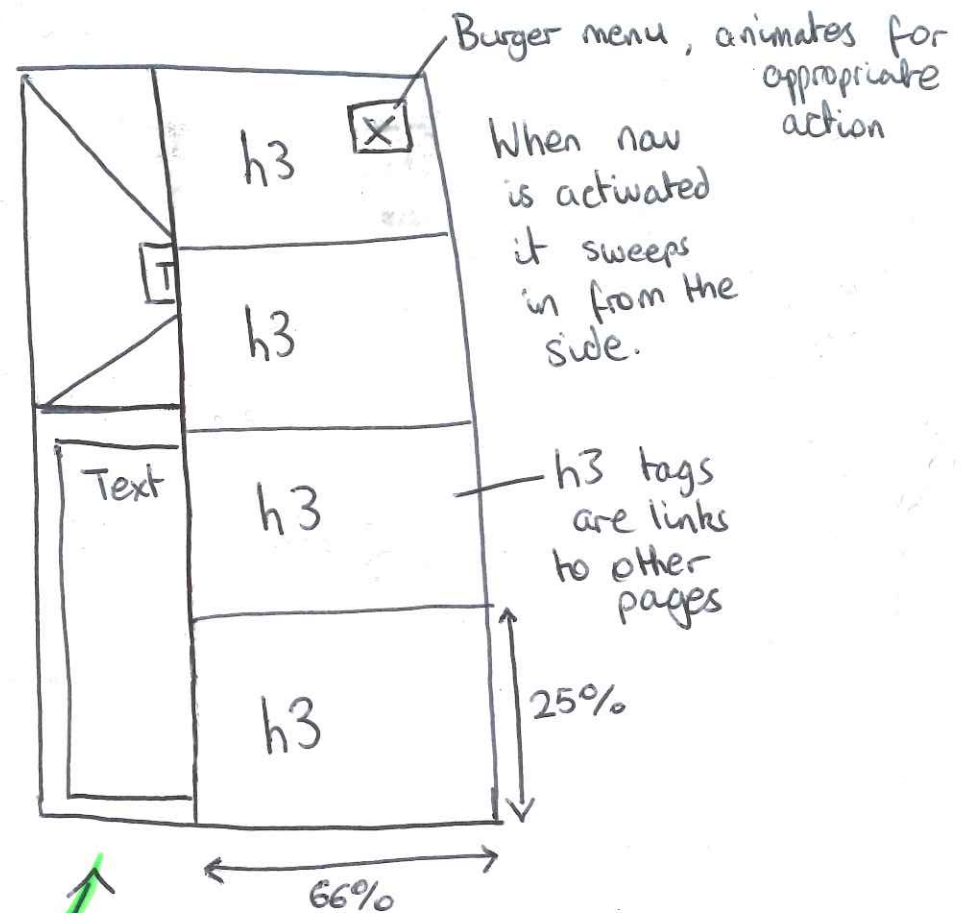 Burger menu, animates for
appropriate
action
X
h3
When nav
is activated
it sweeps
in from the
side.
T
h3
Text
h3
h3 tags
are links
to other
pages
h3
25%
66%